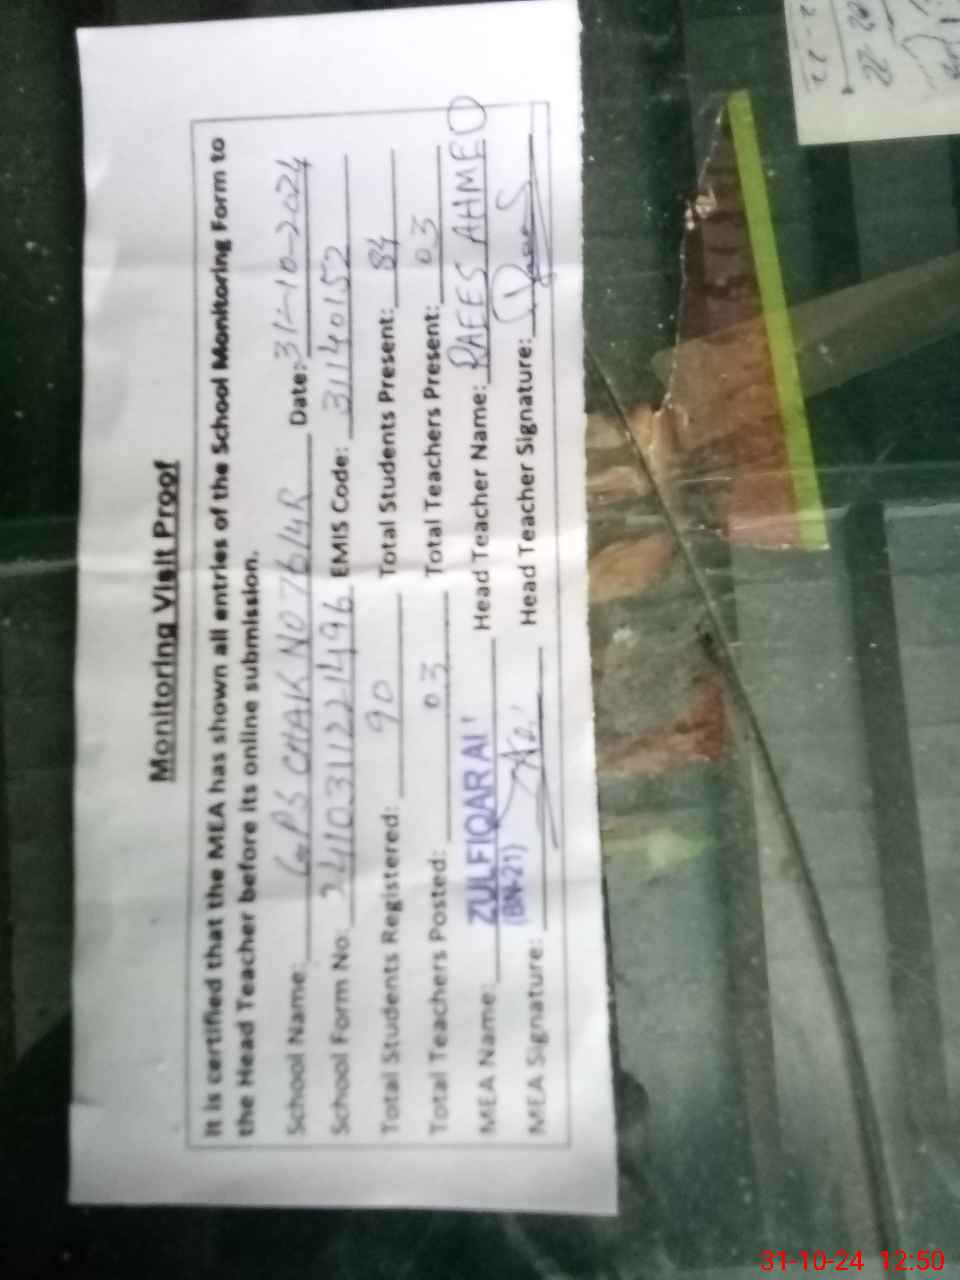 Monitoring Visit Proof
It is certified that the MEA has shown all entries of the School Monitoring Form to
the Head Teacher before its online submission.
School Name: GPS CHAK NO 76/4R Date: 31-10-2024
School Form No: 2410311221496 EMIS Code: 31140152
Total Students Registered: 90 Total Students Present: 84
Total Teachers Posted: 03 Total Teachers Present: 03
MEA Name: ZULFIQAR Head Teacher Name: RAEES AHMED
(BN-21)
MEA Signature: Head Teacher Signature:
31-10-24 12:50